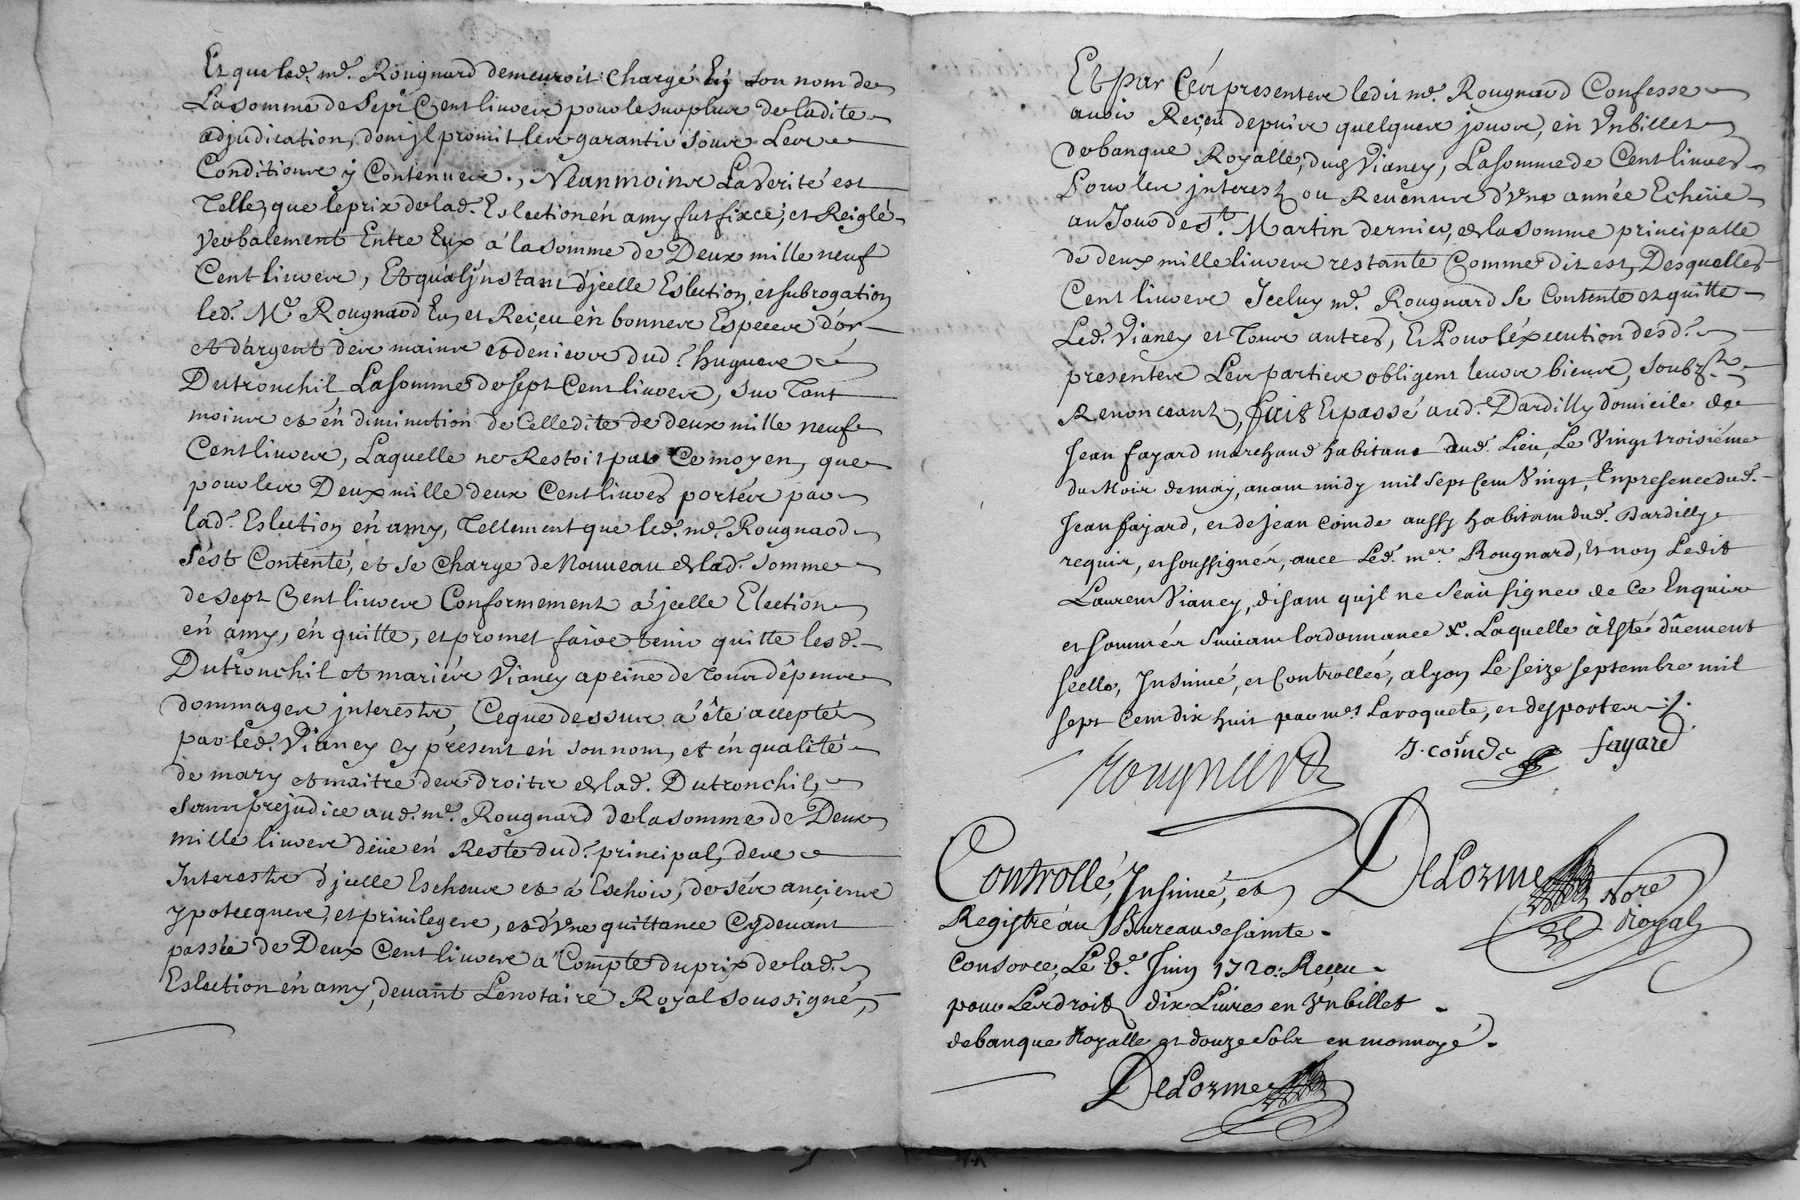 Et que led. md. Rougnard demeuroit chargé En son nom de
La somme de Sept Cent livres pour le surplus de ladite
adjudication, dont jl promit les garantir sous Les
Conditions y Contenues., Neanmoins La verité est
Telle, que le prix de lad. Eslection en amy fut fixcé, et Reiglé
verbalement Entre Eux a la somme de Deux mille neuf
Cent livres, Et qu'a l'jnstant d'jcelle Eslection, et subrogation
led. Md. Rougnard Eu et Reçeu en bonnes Especes d'or
et d'argent des mains et deniers dud. hugues
Dutronchil, La somme de sept Cent livres, sur Tant
moins et en diminution de Celledite de deux mille neuf
Cent livres, Laquelle ne Restoit par Ce moyen, que
pour les Deux mille deux Cent livres portés par
lad. Eslection en amy, Tellement que led. md. Rougnard
s'est Contenté, et se charge de Nouveau de lad. somme
de sept Cent livres Conformement a jcelle Election
en amy, en quitte, et promet faire tenir quitte lesd.
Dutronchil et mariés Vianey a peine de Tous dépens
dommages jnterests, Ce que dessus a été accepté
par led. Vianey cy present en son nom, et en qualité
de mary et maitre des droits de lad. Dutronchil,
sans prejudice aud. md. Rougnard de la somme de Deux
mille livres deüe en Reste dud. principal, des
Interests d'jcelle Escheus et a Eschoir, de ses ançiens
ypotecques, et privileges, et d'une quittance Cydevant
passée de Deux Cent livres a Compte du prix de lad.
Eslection en amy, devant Le notaire Royal soussigné,
Et par Ces presentes ledit md. Rougnard Confesse
avoir Reçeu depuis quelques jours, en Un billet
de banque Royalle, dud Vianey, La somme de Cent livres
Pour les jnterest ou Revenus d'une année Echeüe
au Jour de St. Martin dernier, de la somme principalle
de deux mille livres restante Comme dit est, Desquelles
Cent livres Jceluy md. Rougnard se Contente et quitte
Led. Vianey et Tous autres, Et Pour l'éxecution desd.
presentes Les parties obligent leurs biens, soubz.
Renonceant, fait Et passé aud. Dardilly domicile de
Jean fayard marchand habitant dud. Lieu, Le Vingt troisiéme
du Mois de may, avant midy mil Sept Cent Vingt, En presence dud.
Jean fajard, et de Jean Coinde aussy habitant dud. Dardilly
requis, et soussignés, avec Led. mer. Rougnard, Et non Ledit
Laurent Vianey, disant qu'jl ne sçait signer de Ce Enquis
et sommés suivant l'ordonnance &. Laquelle à Esté düement
scellé, Insinué, et Controllée, a lyon Le seize septembre mil
sept cent dix huit par mes. Laroquete, et desportes ./.
Rougnard J. coinde fayard
Delorme Nore Royal
Controllé, Insinué, et
Registré au Bureau de sainte
Consorce, Le 6e. Juin 1720. Reçeu
pour Les droit dix Livres en Un billet
de banque Royalle et douze Sols en monnoyé.
Delorme